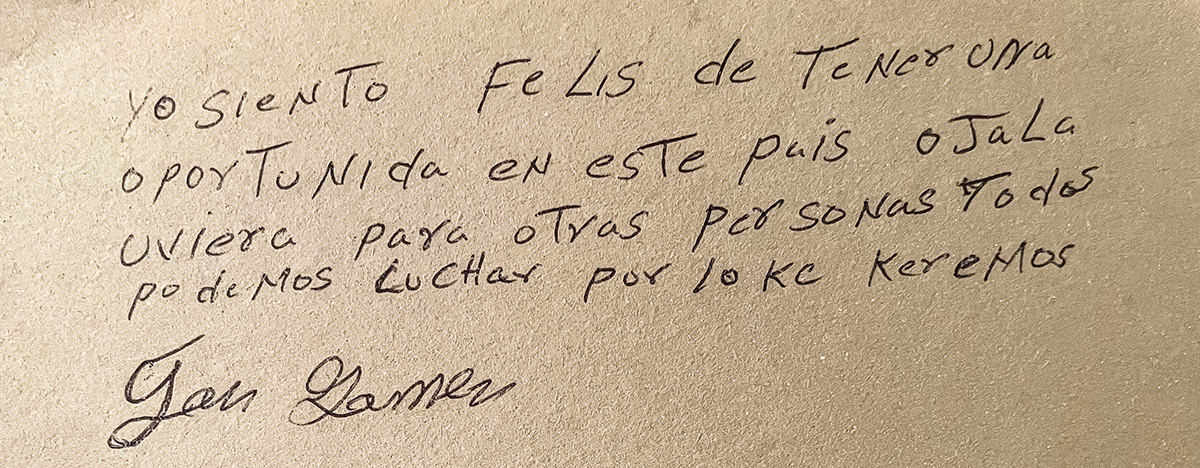 YO SIENTO FELIS de TENer UNa
OPOrTUNIda EN esTe pais OJaLa
UViera para OTras PersoNas Todos
podeMos LUCHar por lo Ke KereMos